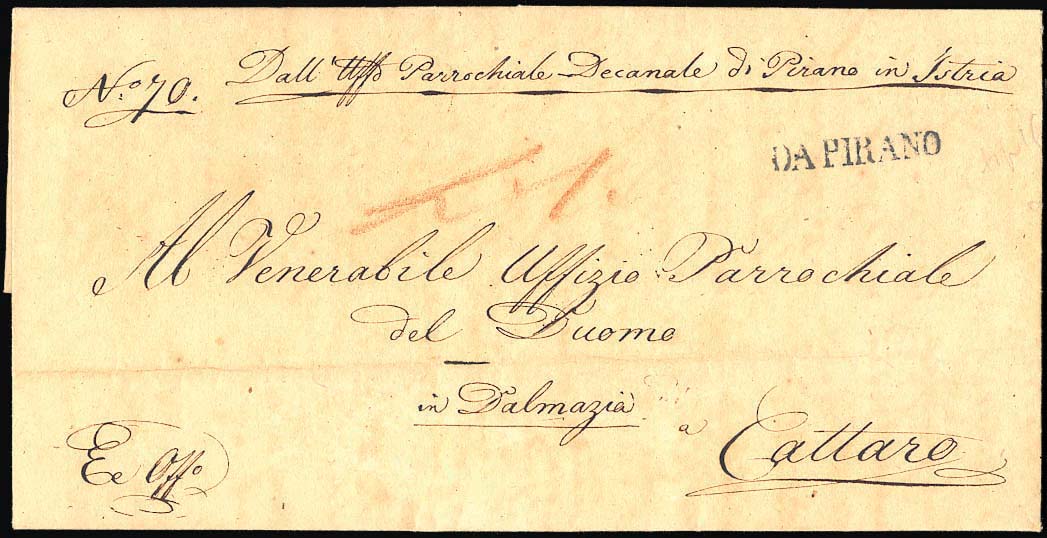 N.o 70. Dall' Uffo Parrochiale Decanale di Pirano in Istria
DA PIRANO
Al Venerabile Uffizio Parrochiale
del Duomo
in Dalmazia
a Cattaro
Ex Offo